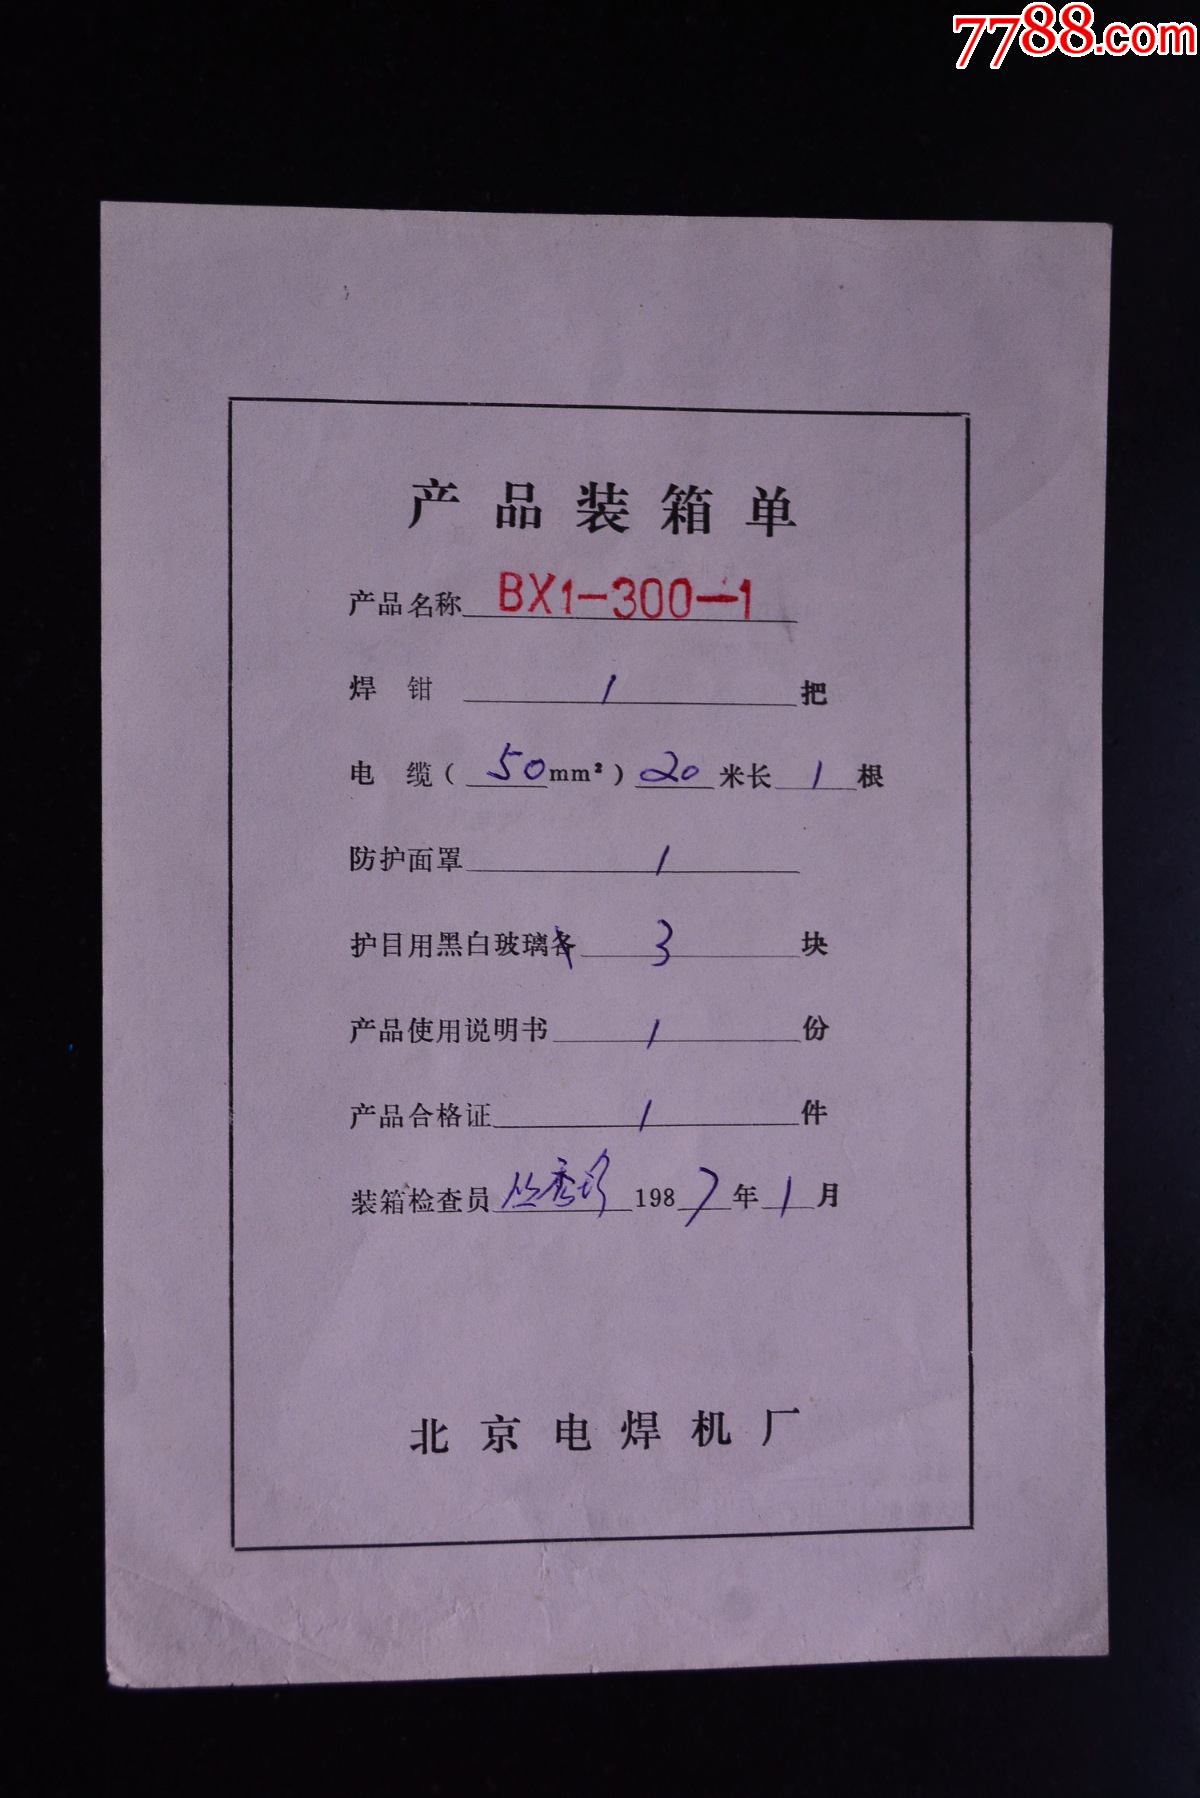 7788.com
产品装箱单
产品名称 BX1-300-1
焊 钳 1 把
电 缆( 50 mm²) 20 米长 1 根
防护面罩 1
护目用黑白玻璃各 3 块
产品使用说明书 1 份
产品合格证 1 件
装箱检查员 丛秀珍 1987年1月
北京电焊机厂